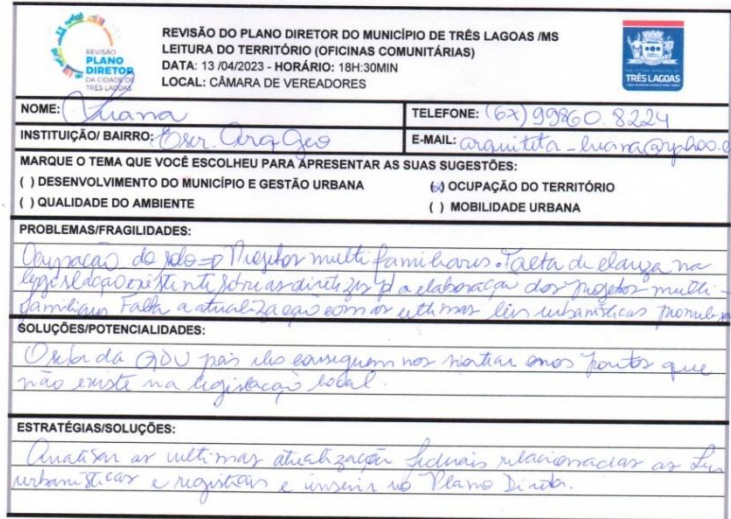 REVISÃO
PLANO
DIRETOR
DA CIDADE DE
TRÊS LAGOAS
REVISÃO DO PLANO DIRETOR DO MUNICÍPIO DE TRÊS LAGOAS /MS
LEITURA DO TERRITÓRIO (OFICINAS COMUNITÁRIAS)
DATA: 13 /04/2023 - HORÁRIO: 18H:30MIN
LOCAL: CÂMARA DE VEREADORES
TRÊS LAGOAS
NOME: Luana
TELEFONE: (67) 99860.8224
INSTITUIÇÃO/ BAIRRO: Escr. ArqGeo
E-MAIL: arquiteta_luana@yahoo.c
MARQUE O TEMA QUE VOCÊ ESCOLHEU PARA APRESENTAR AS SUAS SUGESTÕES:
( ) DESENVOLVIMENTO DO MUNICÍPIO E GESTÃO URBANA
(x) OCUPAÇÃO DO TERRITÓRIO
( ) QUALIDADE DO AMBIENTE
( ) MOBILIDADE URBANA
PROBLEMAS/FRAGILIDADES:
Ocupação do solo => Projetos multifamiliares. Falta de clareza na
legislação existente sobre as diretrizes p/ a elaboração dos projetos multi-
familiares Falta a atualização com as ultimas leis urbanísticas
SOLUÇÕES/POTENCIALIDADES:
da GDU pois eles conseguem nos nortear em pontos que
não existe na legislação local.
ESTRATÉGIAS/SOLUÇÕES:
Analisar as ultimas atualização federais relacionadas as Leis
urbanísticas e registrais e inserir no Plano Diretor.